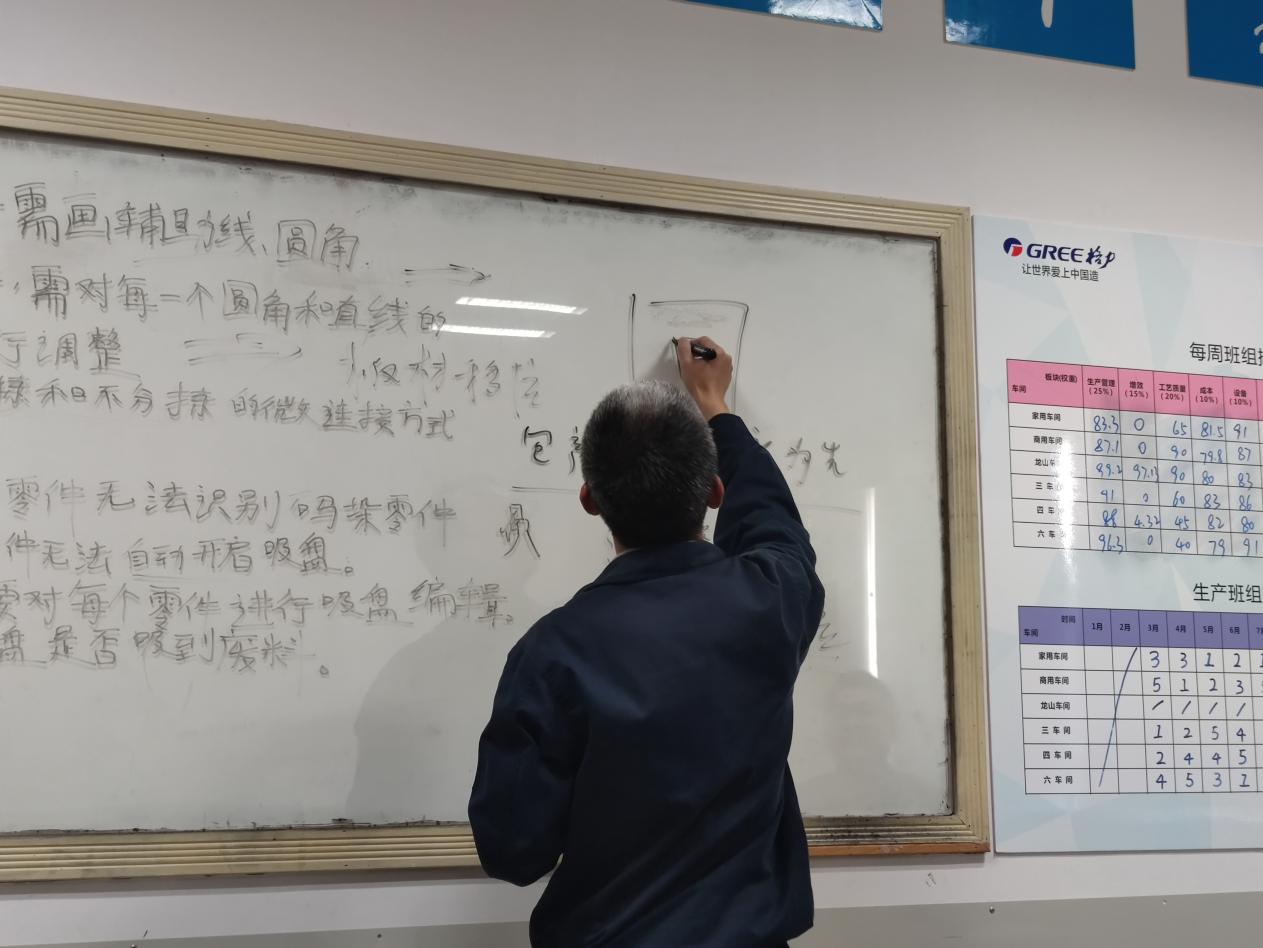 需画辅助线、圆角
需对每一个圆角和直线的
行调整
板材移位
和不分拣的微连接方式
为先
零件无法识别码垛零件
件无法自动开启吸盘。
要对每个零件进行吸盘编辑。
盘是否吸到废料。
GREE格力
让世界爱上中国造
每周班组
板块(权重) 生产管理(25%) 增效(15%) 工艺质量(20%) 成本(10%) 设备(10%)
车间
家用车间 83.3 0 65 81.5 91
商用车间 87.1 0 90 79.8 87
龙山车间 99.2 97.13 90 80 83
三车间 91 0 60 83 86
四车间 88 4.32 45 82 80
六车间 96.3 0 40 79 91
生产班组
时间 1月 2月 3月 4月 5月 6月
车间
家用车间 3 3 1 2
商用车间 5 1 2 3
龙山车间 / / / /
三车间 1 2 5 4
四车间 2 4 4 5
六车间 4 5 3 1